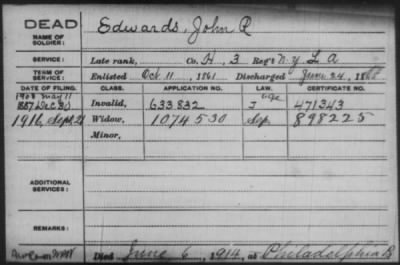 DEAD
NAME OF SOLDIER:
Edwards, John R
SERVICE: Late rank, Co. H, 3 Reg't N.Y. L A
TERM OF SERVICE: Enlisted Oct. 11, 1861 Discharged June 24, 1865
DATE OF FILING. CLASS. APPLICATION NO. LAW. CERTIFICATE NO.
1908 May 11 age
1887 Dec 30 Invalid, 633832 J 471343
1916, Sept. 21 Widow, 1074530 Sep. 898225
Minor,
ADDITIONAL SERVICES:
REMARKS:
Died June 6, 1914, at Philadelphia